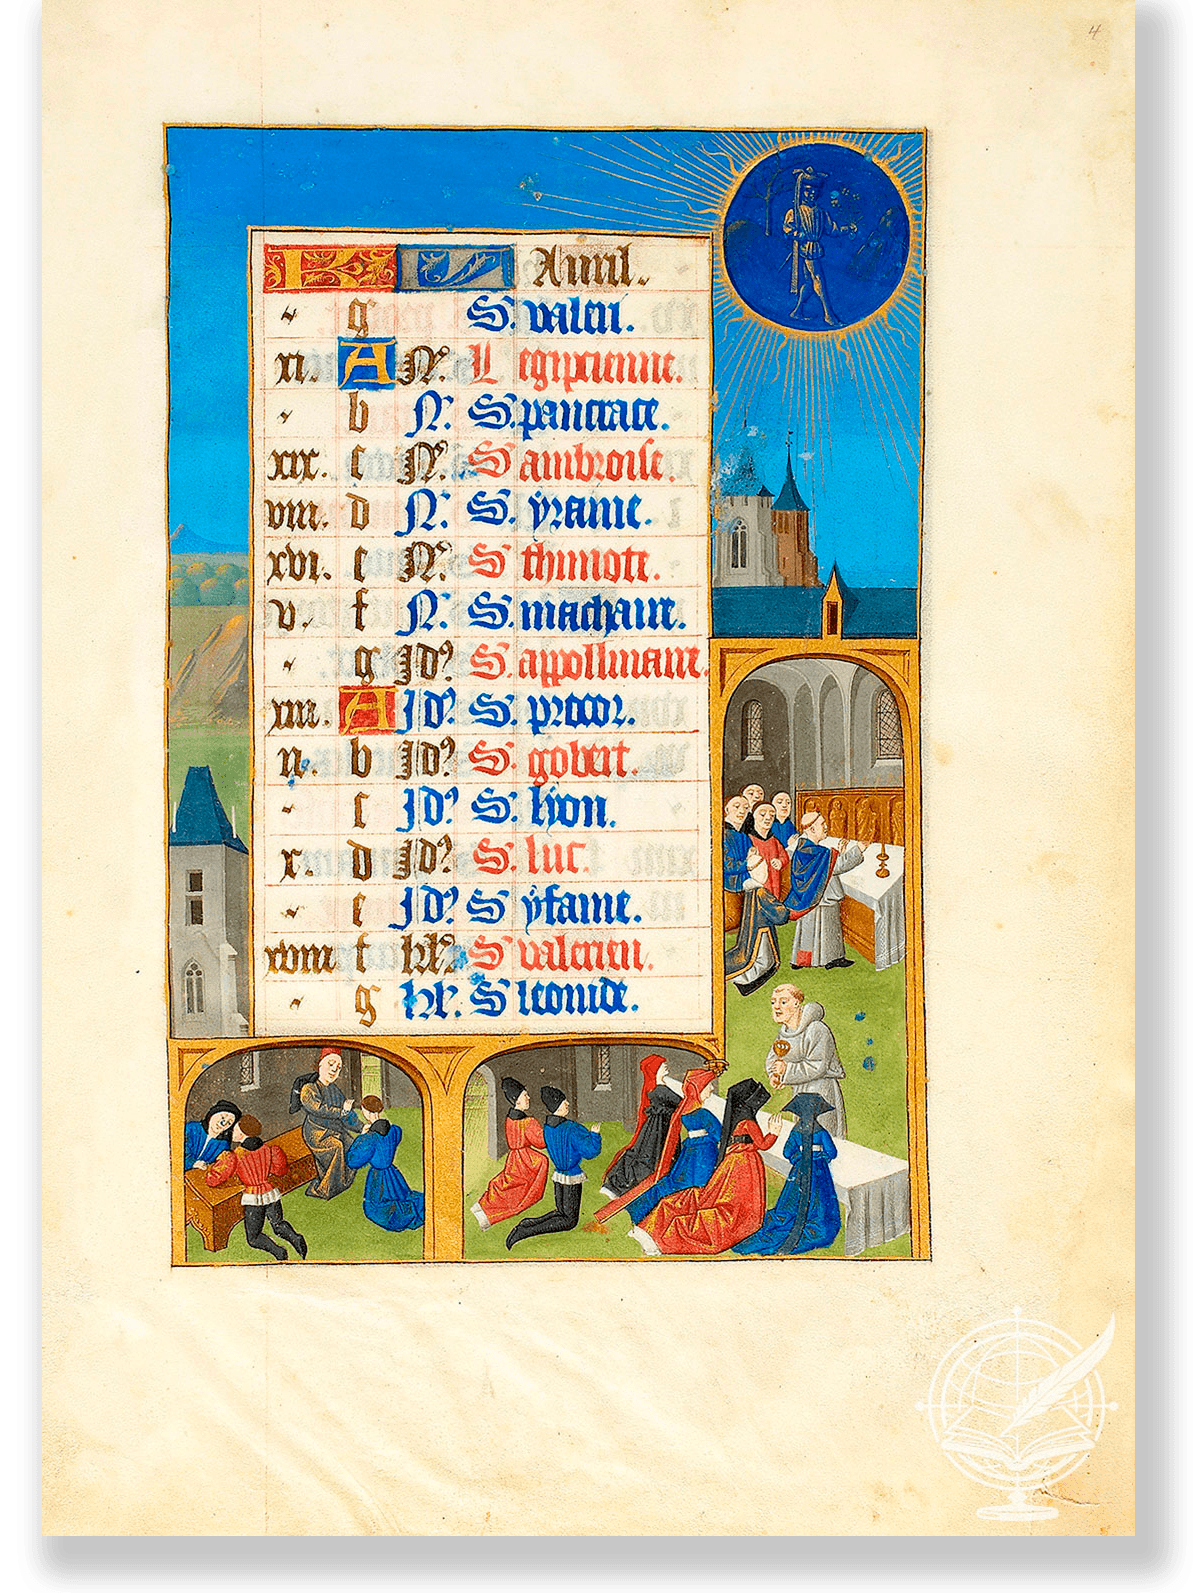 4
KL Auril.
g S. valeri.
xi. A N9. L egipcienne.
b N9. S. pancrace.
xix. c N9. S ambroise.
viii. d N9. S. yranie.
xvi. e N9. S thimote.
v. f N9. S. machaire.
g Jd9. S. appollinaire.
xiii. A Jd9. S. procor.
ii. b Jd9. S. gobert.
c Jd9. S. lyon.
x. d Jd9. S. luc.
e Jd9. S yfaine.
xviii f kl9. S valerien.
g kl9. S leonide.